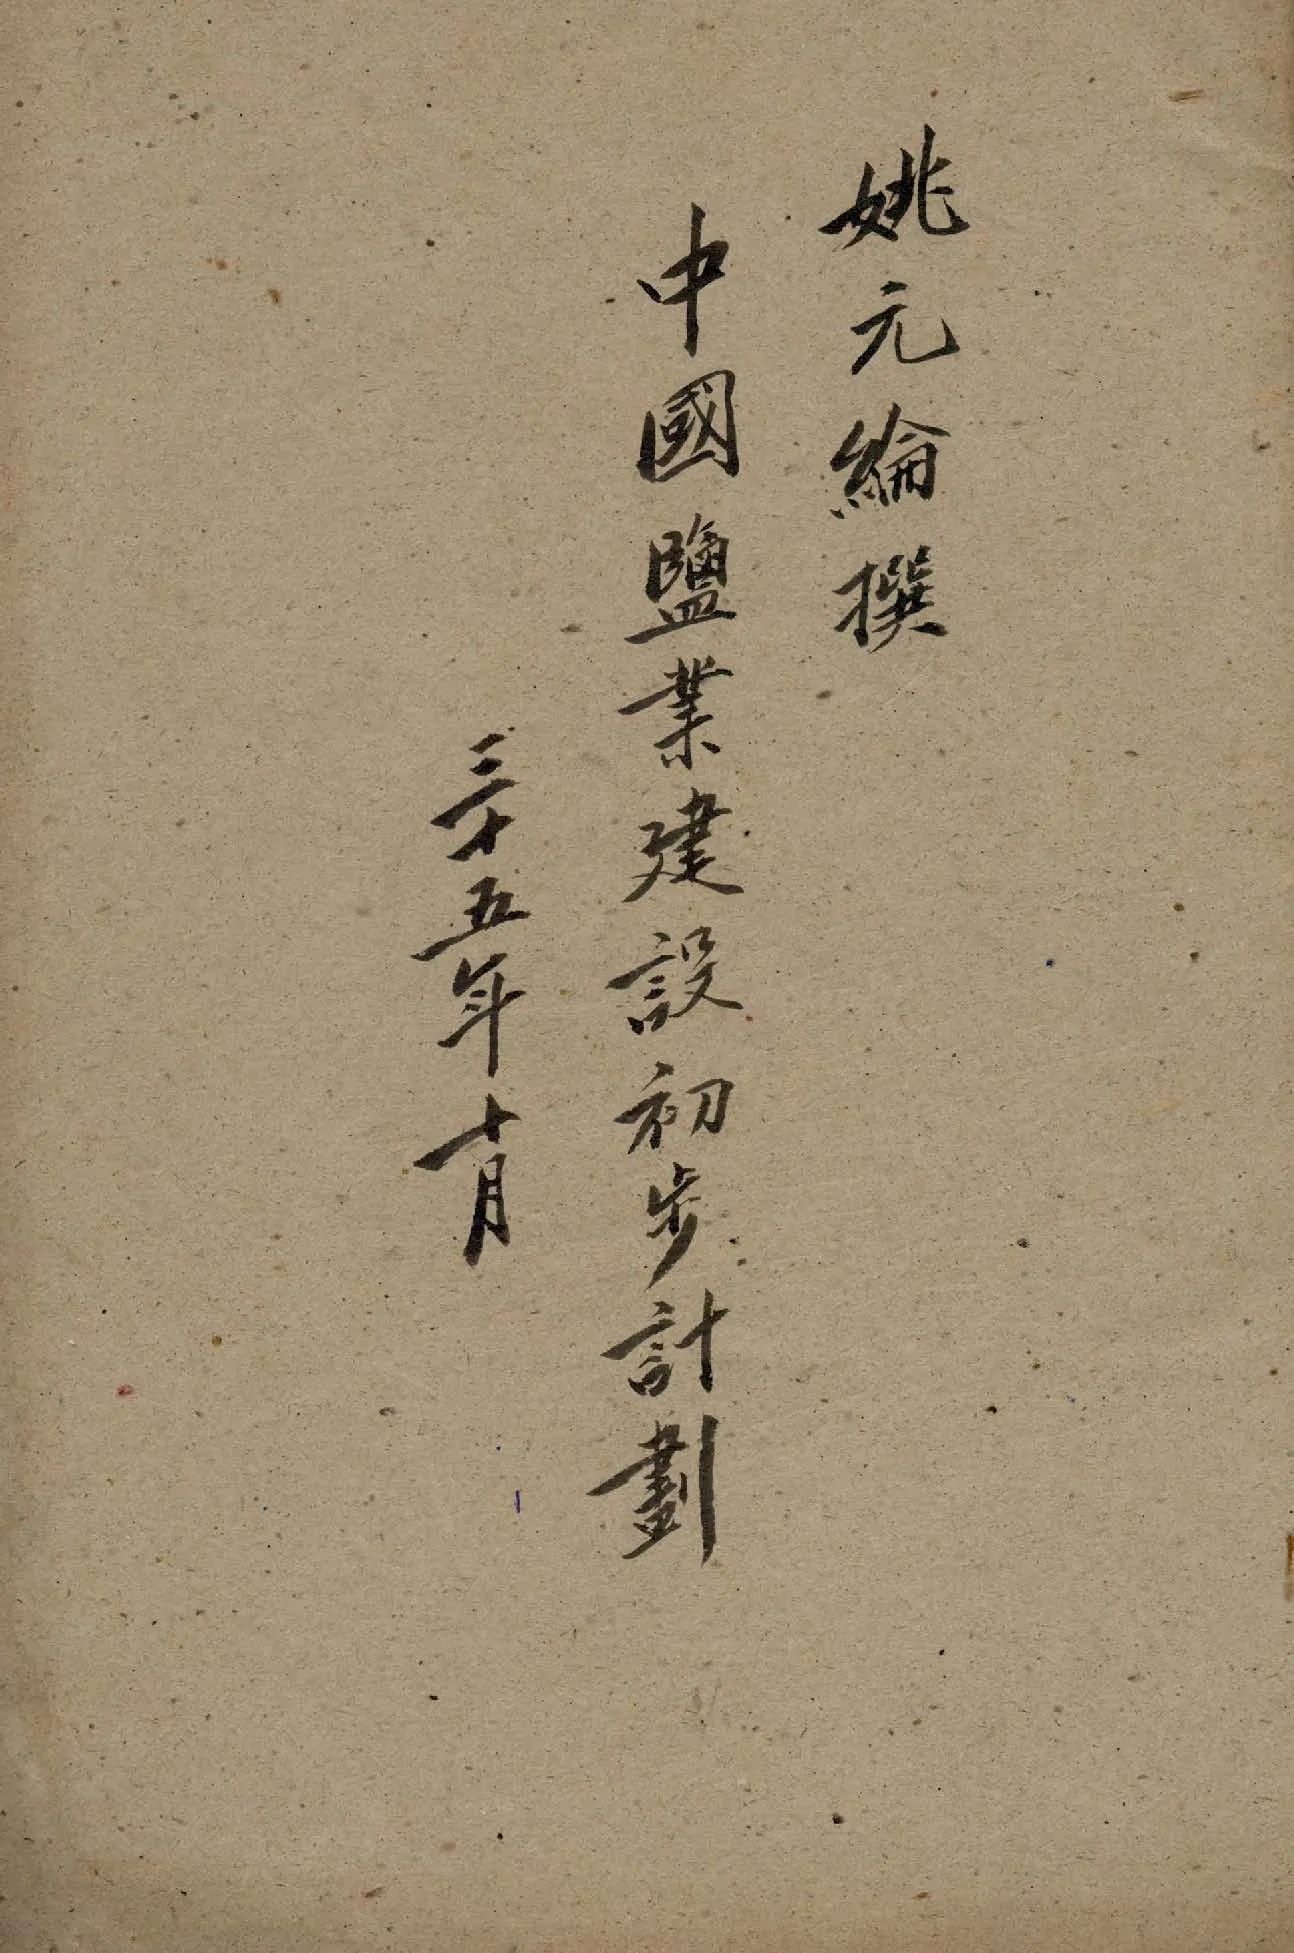 姚元綸撰
中國鹽業建設初步計劃
三十五年十月